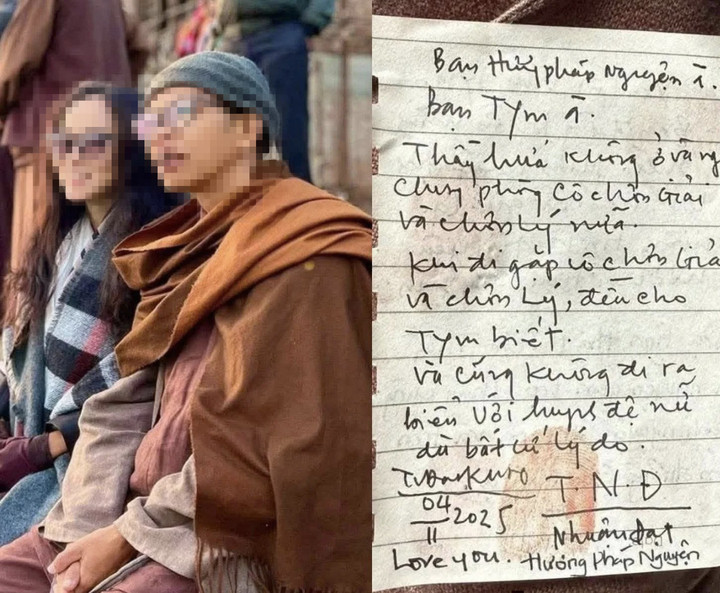 Bạn Hươngpháp Nguyện à.
Bạn Tym à.
Thầy hứa không ở và ng
chung phòng cô chơn Giải
và chơn lý nữa.
Khi đi gặp cô chơn Giả
và chơn Lý, đều cho
Tym biết.
và cũng không đi ra
biển với huynh đệ nữ
dù bất cứ lý do.
04
11 2025
T.N.Đ
Nhuân đạt
Love you. Hương Pháp Nguyện